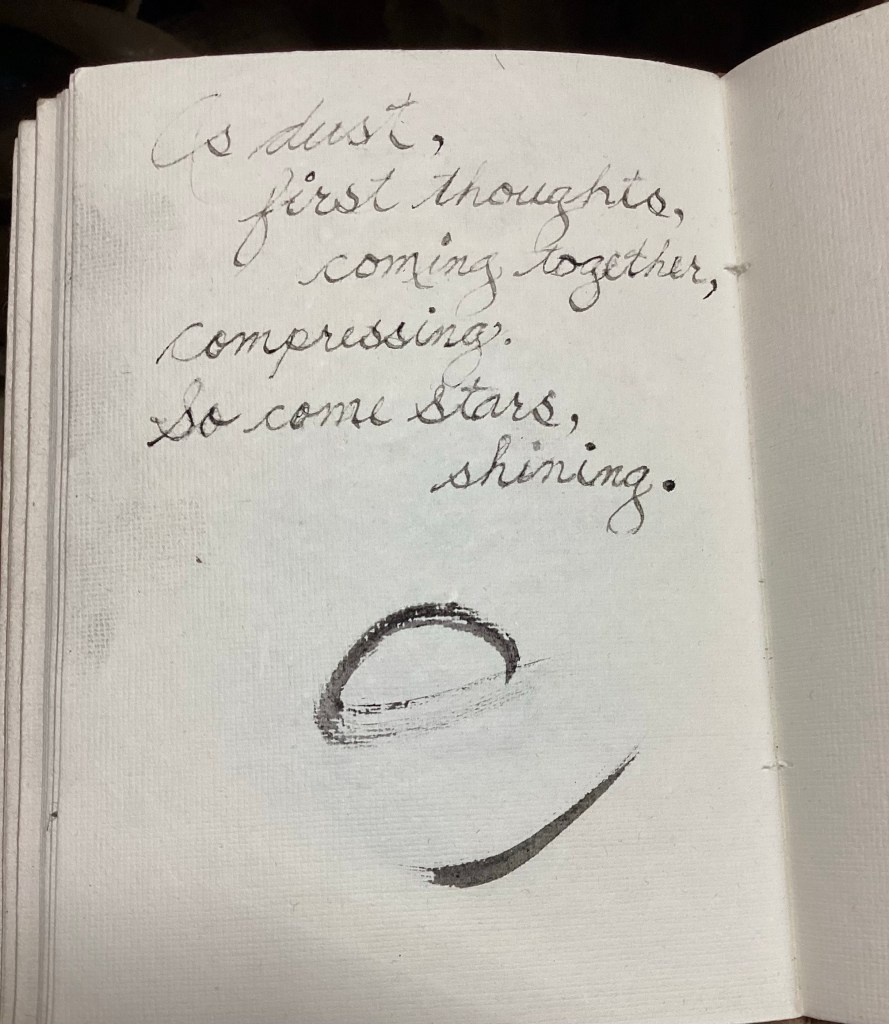 As dust,
first thoughts,
coming together,
compressing.
So come stars,
shining.